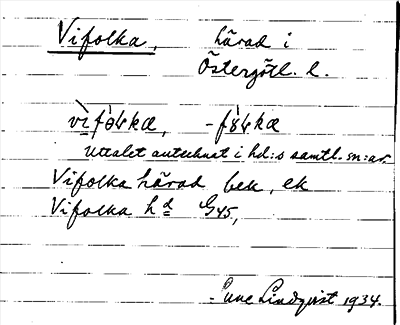 Vifolka, härad i
Östergötl. l.
vìfòɫkæ, -fòɫkæ
Uttalet antecknat i hd:s samtl. sn:ar
Vifolka härad bek, ek
Vifolka hd G45,
Sune Lindqvist 1934.